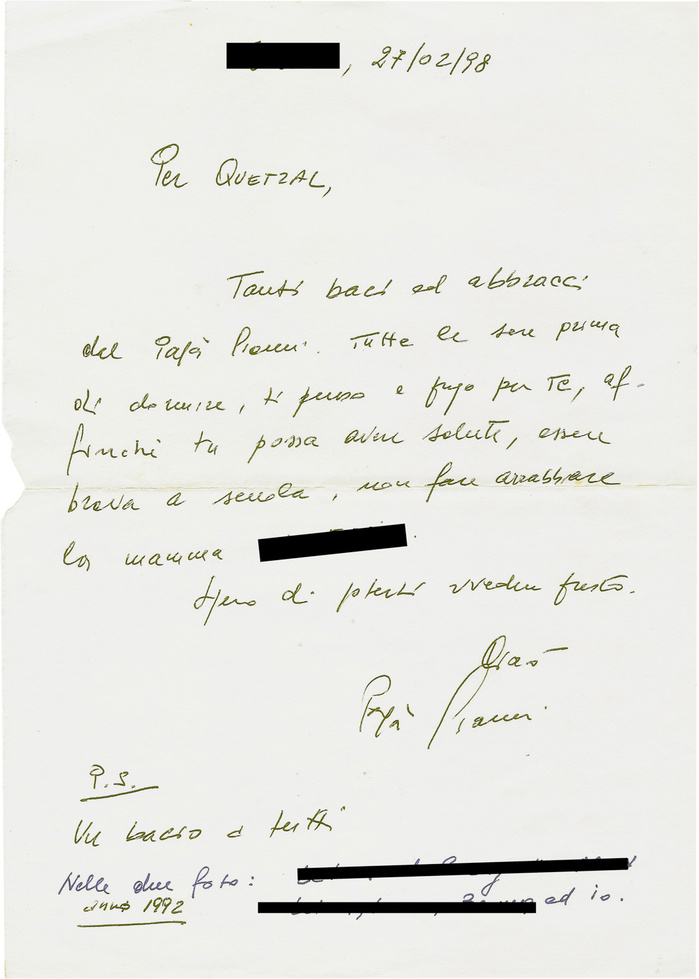 , 27/02/98
Per QUETZAL,
Tanti baci ed abbracci
dal Papà Gianni. Tutte le sere prima
di dormire, ti penso e prego per te, af-
finchè tu possa avere salute, essere
brava a scuola, non fare arrabbiare
la mamma
Spero di poterti rivedere presto.
Ciao
Papà Gianni
P.S.
Un bacio a tutti
Nelle due foto:
anno 1992 ed io.